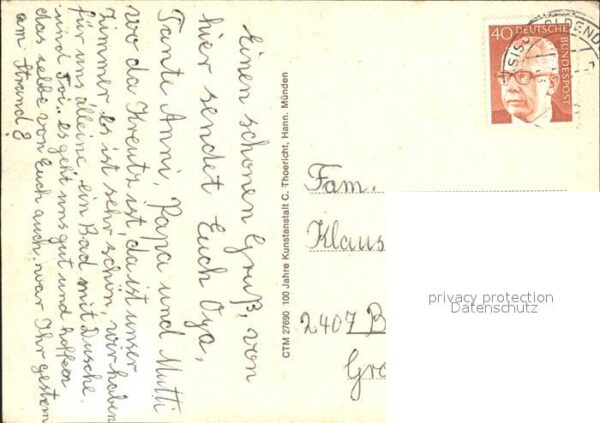 Einen schönen Gruß, von
hier sendet Euch Oya,
Tante Anni, Papa und Mutti
wo da Kreutz ist, da ist unser
Zimmer es ist sehr schön, wir haben
für uns alleine ein Bad mit Dusche
und es geht uns gut und hoffen
das selbe von Euch auch, war Ihr gestern
am Strand?
CTM 27690 100 Jahre Kunstanstalt C. Thoericht, Hann. Münden
40 DEUTSCHE
BUNDESPOST
Fam.
Klaus
2407 B
Gro
privacy protection
Datenschutz